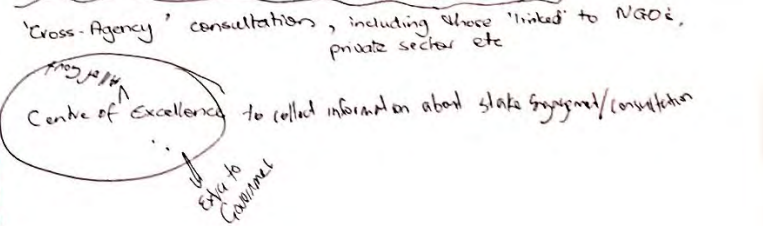 'Cross-Agency' consultation, including those 'linked' to NGOs,
private sector etc
All of Govt
Centre of Excellence to collect information about stake Engagment/consultation
Extra to
Governmet